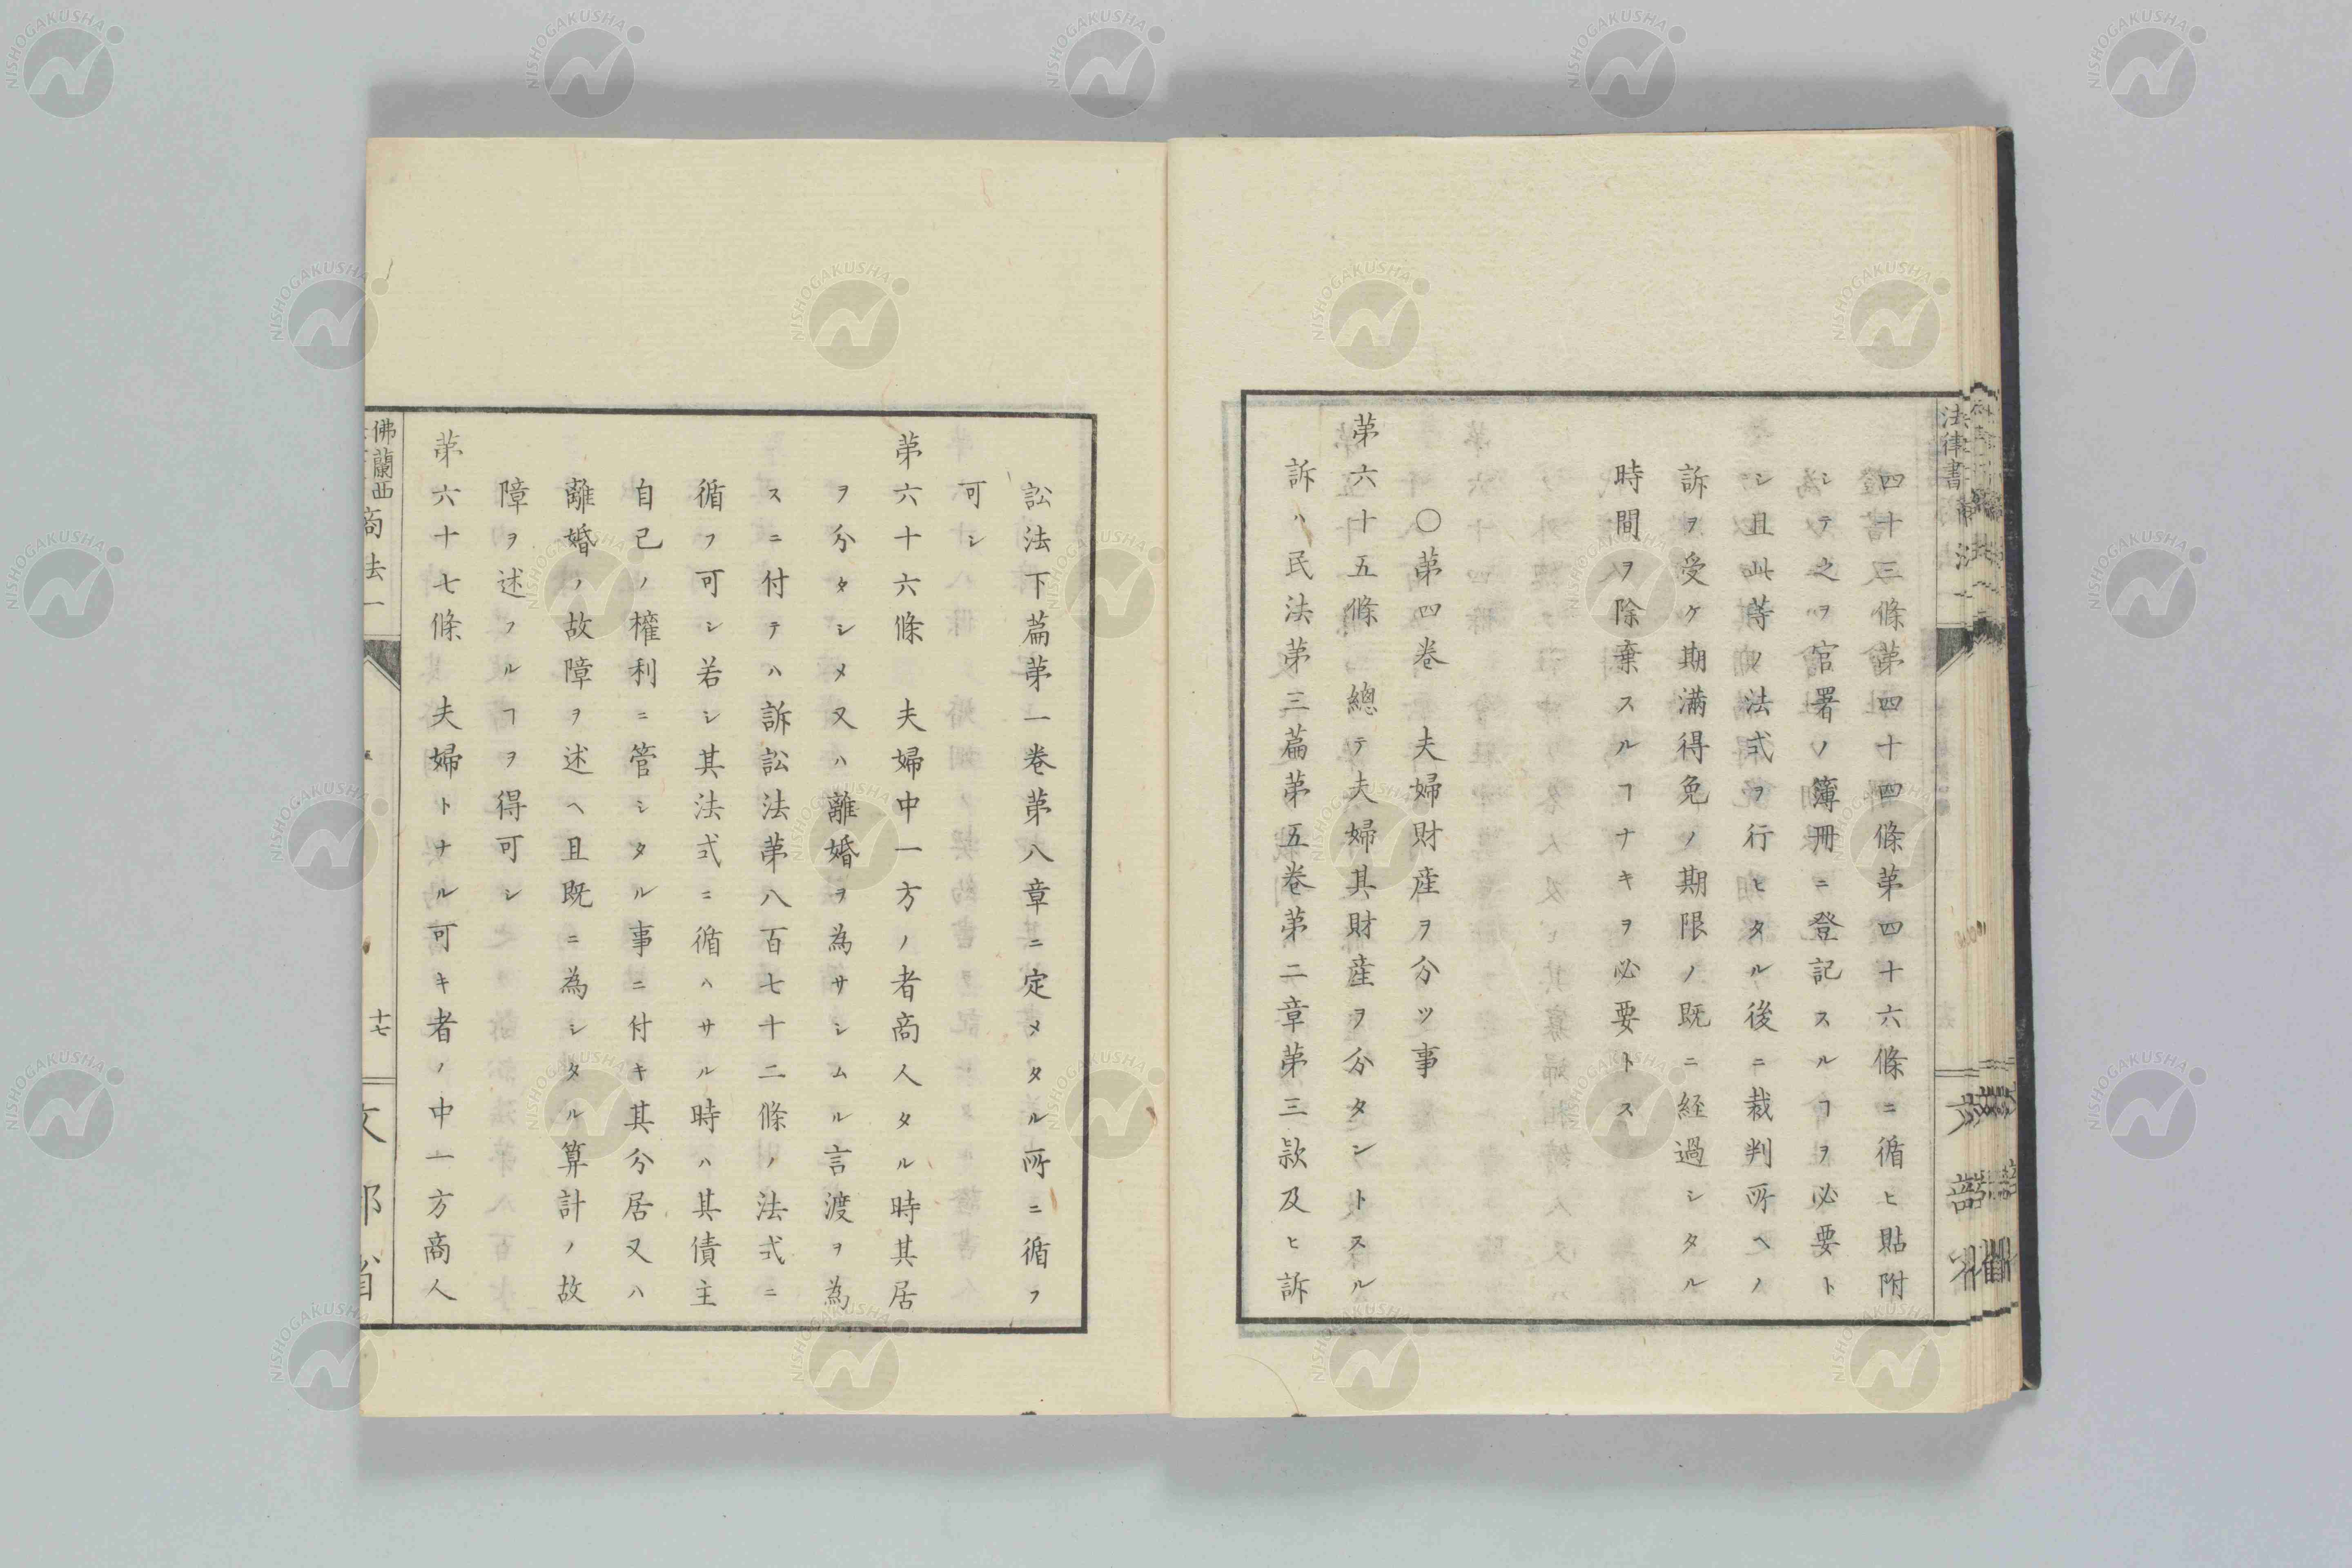 四十三條第四十四條第四十六條ニ循ヒ貼附
シテ之ヲ官署ノ簿冊ニ登記スルヿヲ必要ト
シ且此等ノ法式ヲ行ヒタル後ニ裁判所ヘノ
訴ヲ受ケ期満得免ノ期限ノ既ニ経過シタル
時間ヲ除棄スルヿナキヲ必要トス
○第四卷　夫婦財産ヲ分ツ事
第六十五條　總テ夫婦其財産ヲ分タントスル
訴ハ民法第三篇第五卷第二章第三款及ヒ訴
訟法下篇第一卷第八章ニ定メタル所ニ循フ
可シ
第六十六條　夫婦中一方ノ者商人タル時其居
ヲ分タシメ又ハ離婚ヲ為サシムル言渡ヲ為
スニ付テハ訴訟法第八百七十二條ノ法式ニ
循フ可シ若シ其法式ニ循ハサル時ハ其債主
自己ノ權利ニ管シタル事ニ付キ其分居又ハ
離婚ノ故障ヲ述ヘ且既ニ為シタル算計ノ故
障ヲ述フルヿヲ得可シ
第六十七條　夫婦トナル可キ者ノ中一方商人
佛蘭西
商法一
十七
文部省
法律書
NISHOGAKUSHA